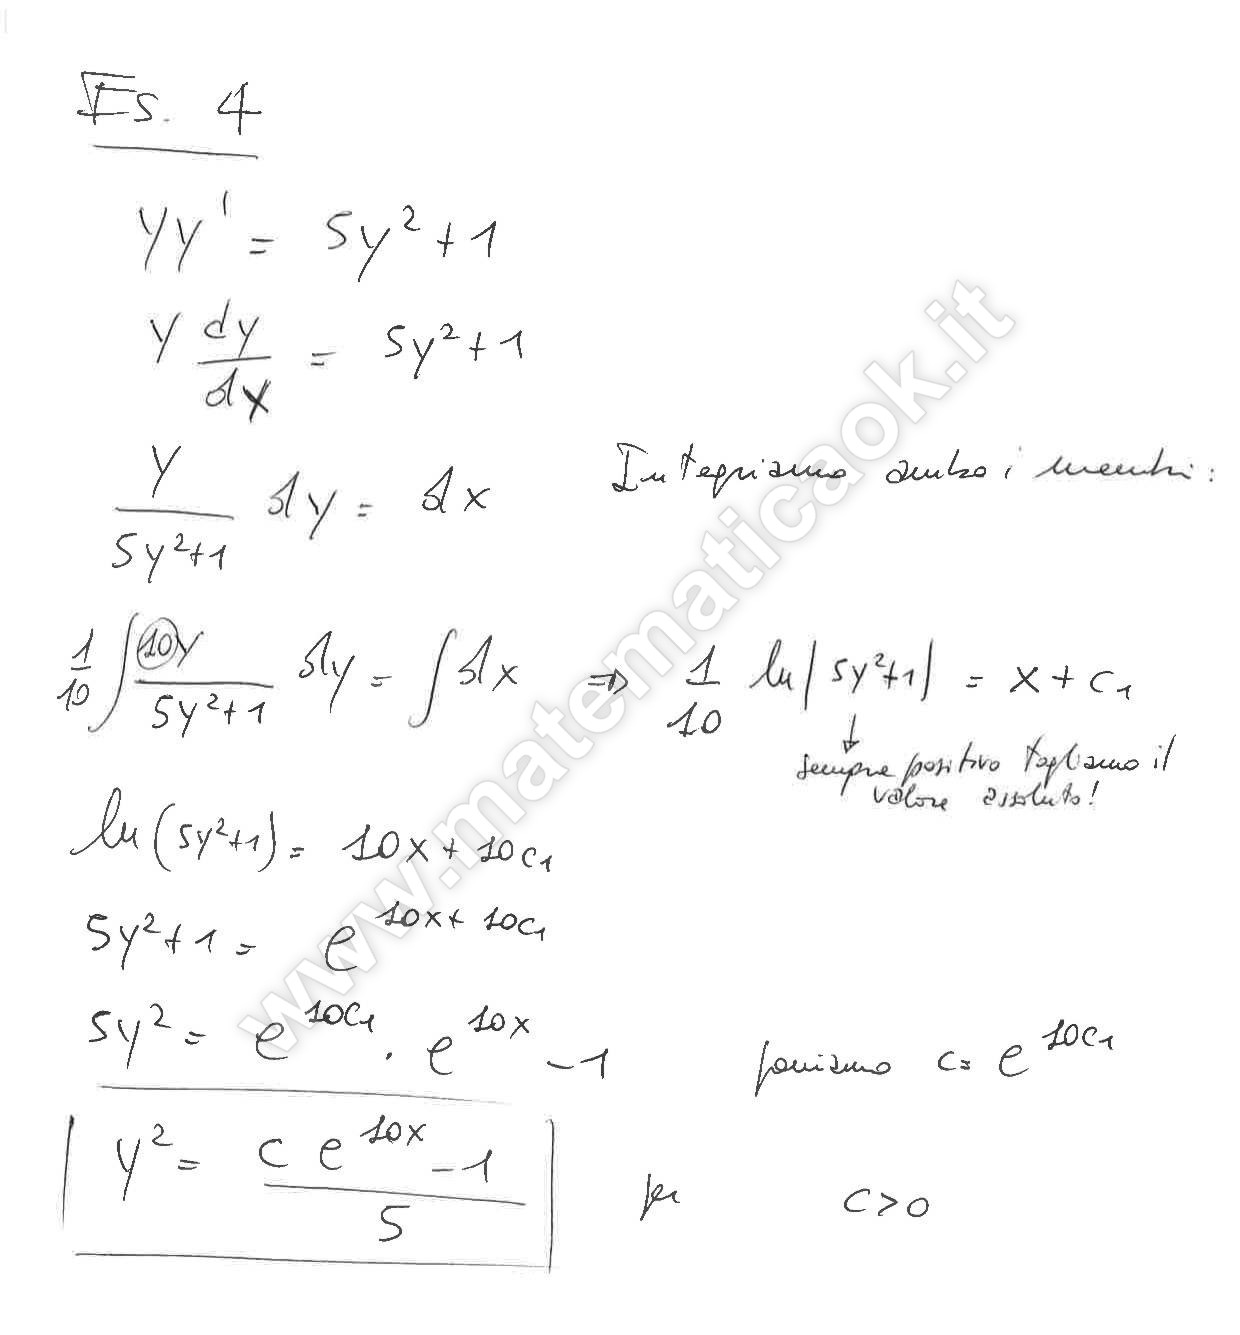 Es. 4
yy' = 5y²+1
y dy/dx = 5y²+1
y/(5y²+1) dy = dx Integriamo ambo i membri:
1/10 ∫ 10y/(5y²+1) dy = ∫ dx ⇒ 1/10 ln|5y²+1| = x + c₁
↓
sempre positivo togliamo il
valore assoluto!
ln(5y²+1) = 10x + 10c₁
5y²+1 = e^(10x+10c₁)
5y² = e^(10c₁) · e^(10x) - 1 poniamo c = e^(10c₁)
y² = (c e^(10x) - 1)/5 per c>0
www.matematicaok.it